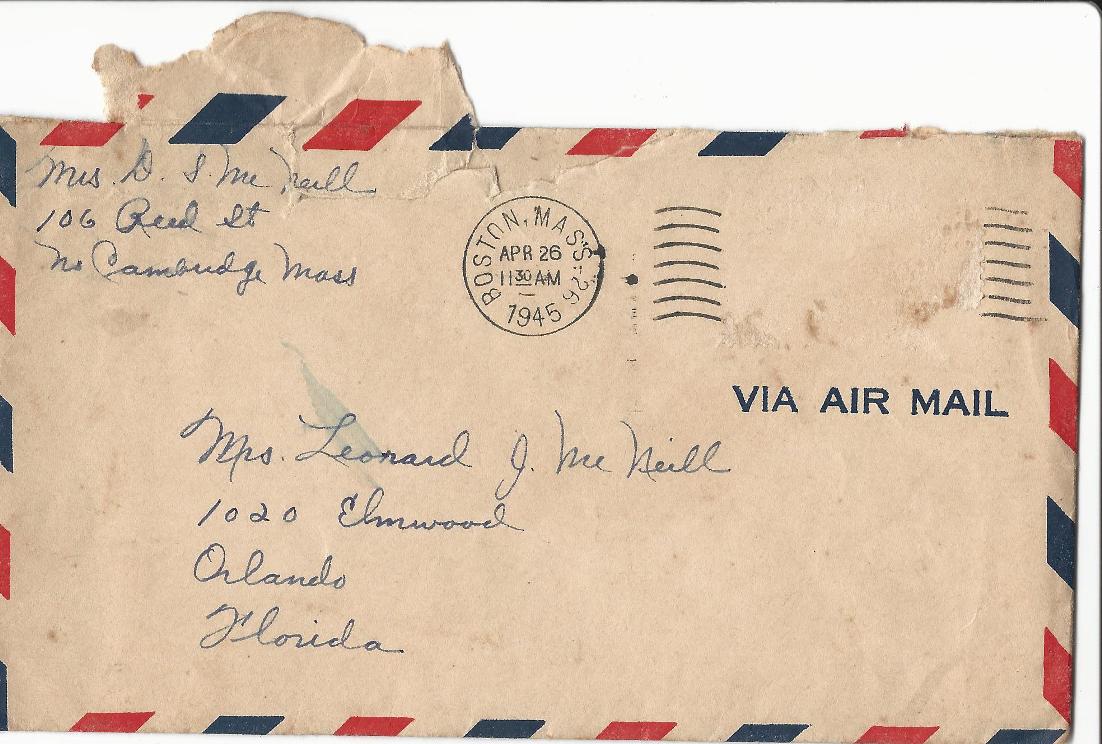 Mrs. D. S. Mc Neill
106 Reed St
No Cambridge Mass
BOSTON, MASS. 26
APR 26
11 30 AM
1945
VIA AIR MAIL
Mrs. Leonard J. Mc Neill
1020 Elmwood
Orlando
Florida